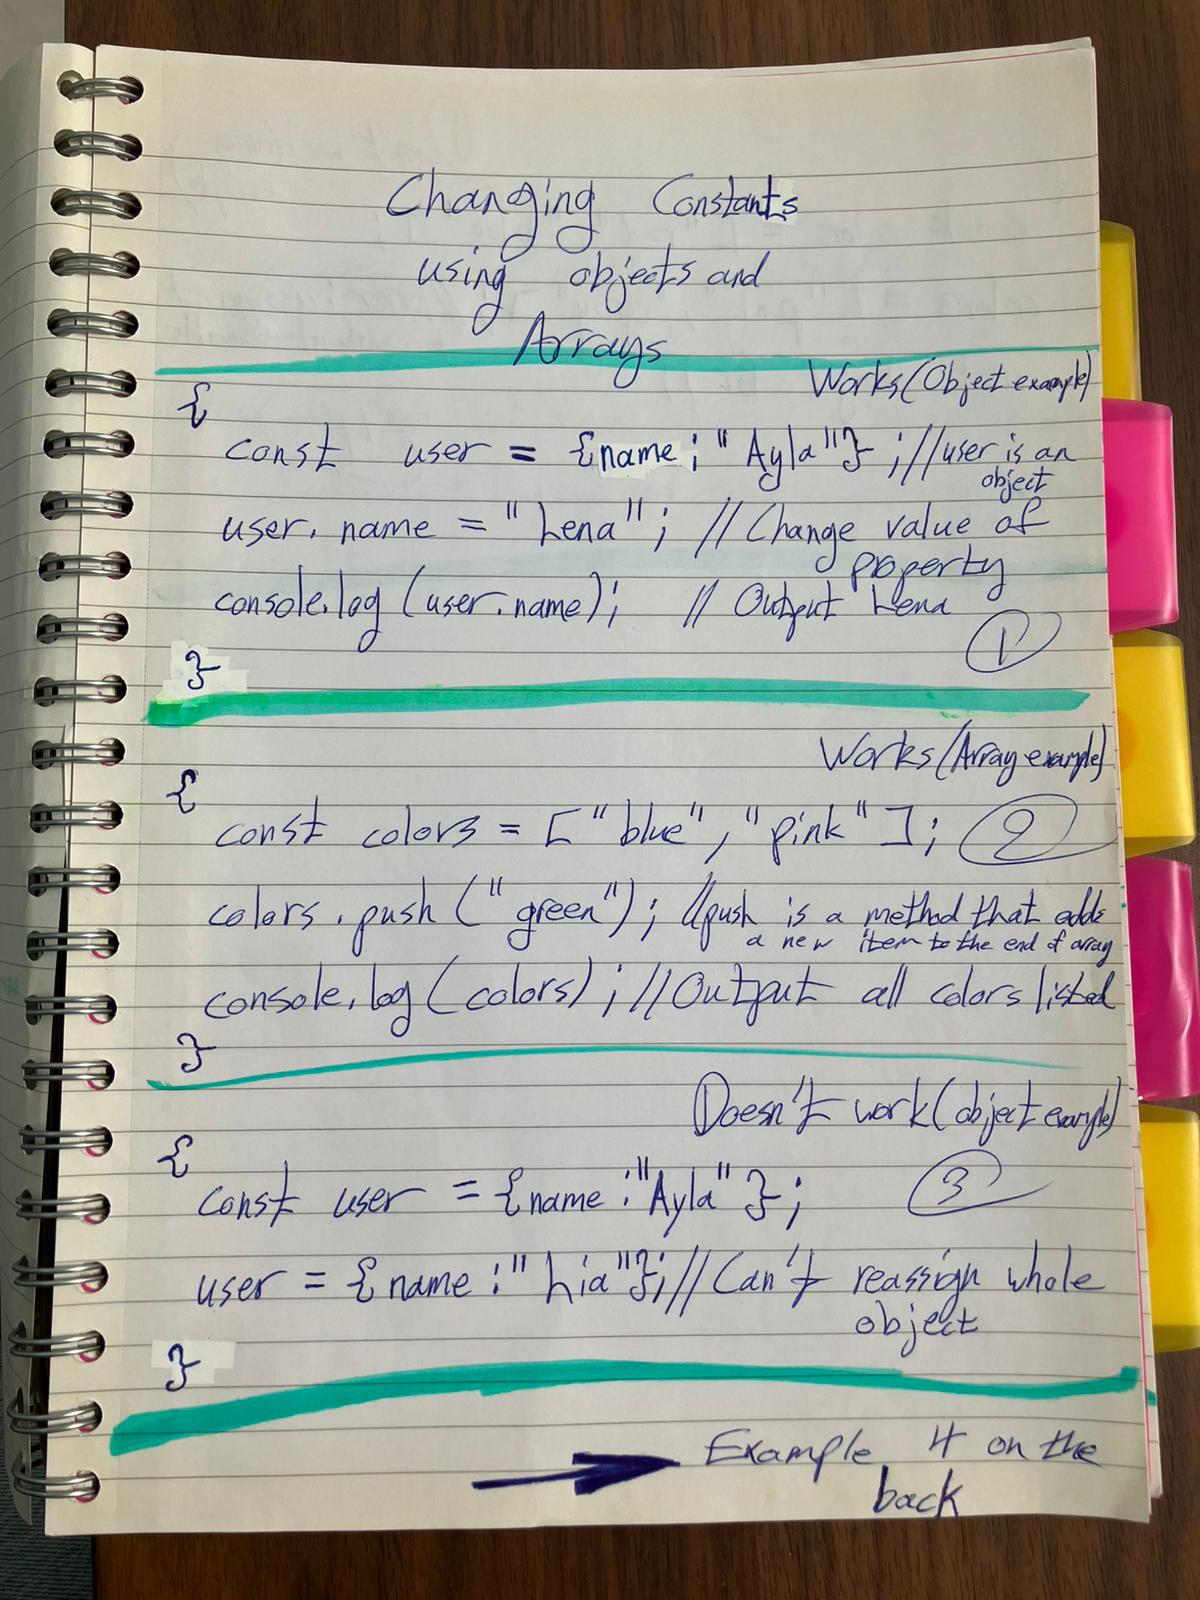 Changing Constants
using objects and
Arrays
Works (Object example)
{
const user = {name ; "Ayla"} ; //user is an
object
user. name = "Lena" ; // Change value of
property
console.log (user.name); // Output Lena
1
}
Works (Array example)
{
const colors = [ "blue" , "pink" ] ; 2
colors . push ("green") ; //push is a method that adds
a new item to the end of array
console.log ( colors) ; //Output all colors listed
}
Doesn't work (object example)
{
const user = {name : "Ayla" } ; 3
user = { name : " Lia"}; // Can't reassign whole
object
}
Example 4 on the
back